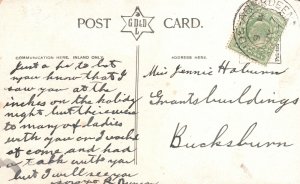 POST CARD.
G.D&D
ABERDEEN
COMMUNICATION HERE, INLAND ONLY.
ADDRESS HERE.
Just a to let
you know that I
saw you at the
inches on the holiday
night but there were
to many of ladies
with you or I would
of come and had
a talk with you
but I will see you
Miss Jennie
Grants buildings
Bucksburn